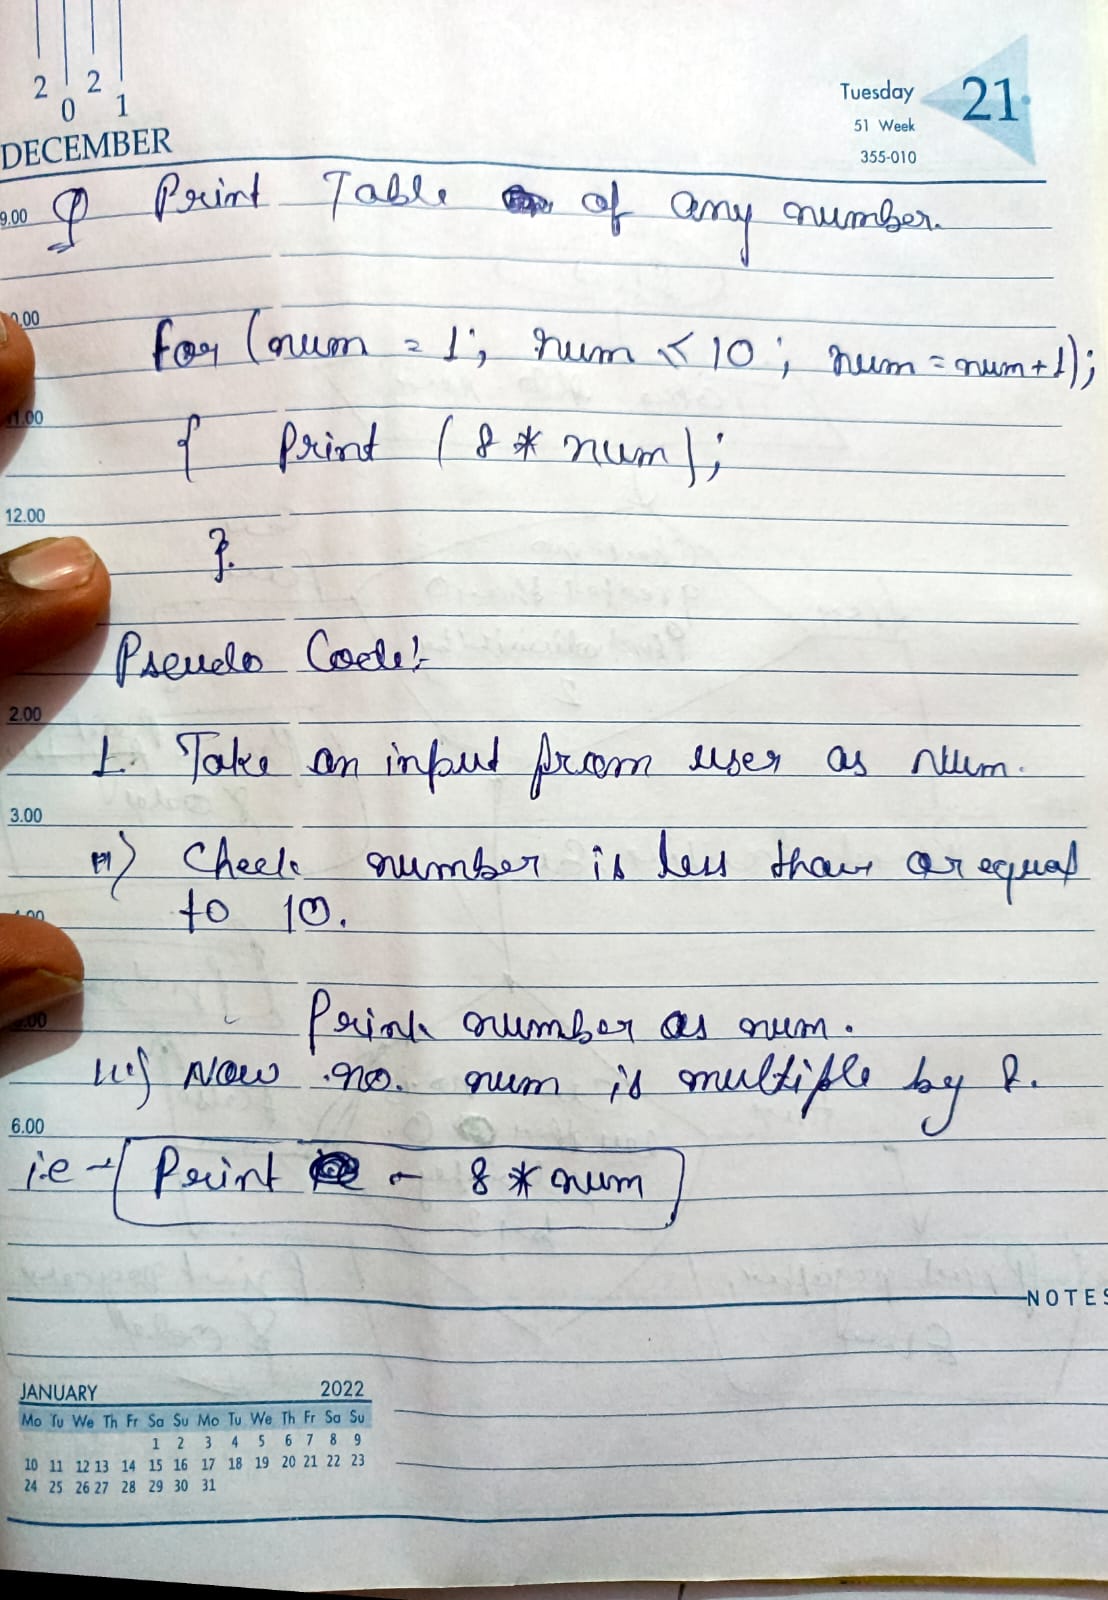 2 0 2 1
DECEMBER
Tuesday 21
51 Week
355-010
9.00 Q Print Table of any number.
.00
for (num = 1; num < 10; num = num + 1);
11.00
{ Print (8 * num);
12.00
}.
Pseudo Code:-
2.00
1. Take an input from user as num.
3.00
ii) Check number is less than or equal
to 10.
.00
Print number as num.
iii) Now no. num is multiple by 8.
6.00
i.e → Print - 8 * num
NOTES
JANUARY 2022
Mo Tu We Th Fr Sa Su Mo Tu We Th Fr Sa Su
1 2 3 4 5 6 7 8 9
10 11 12 13 14 15 16 17 18 19 20 21 22 23
24 25 26 27 28 29 30 31